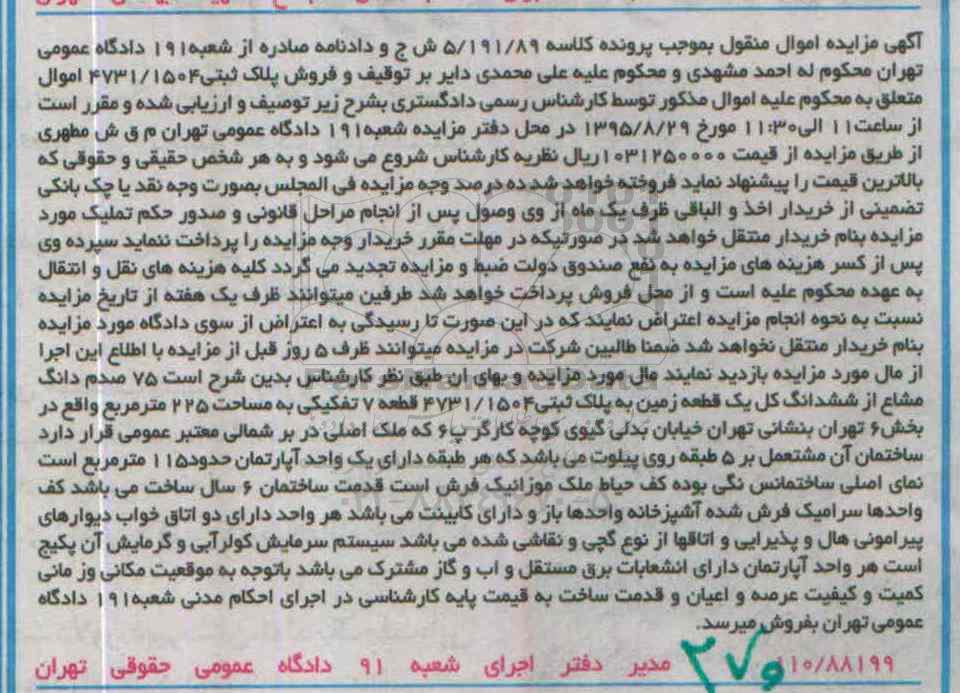 آگهی مزایده اموال منقول بموجب پرونده کلاسه ۵/۱۹۱/۸۹ ش ج و دادنامه صادره از شعبه۱۹۱ دادگاه عمومی
تهران محکوم له احمد مشهدی و محکوم علیه علی محمدی دایر بر توقیف و فروش پلاک ثبتی۴۷۳۱/۱۵۰۴ اموال
متعلق به محکوم علیه اموال مذکور توسط کارشناس رسمی دادگستری بشرح زیر توصیف و ارزیابی شده و مقرر است
از ساعت۱۱ الی۱۱:۳۰ مورخ ۱۳۹۵/۸/۲۹ در محل دفتر مزایده شعبه۱۹۱ دادگاه عمومی تهران م ق ش مطهری
از طریق مزایده از قیمت ۱۰۳۱۲۵۰۰۰۰ریال نظریه کارشناس شروع می شود و به هر شخص حقیقی و حقوقی که
بالاترین قیمت را پیشنهاد نماید فروخته خواهد شد ده درصد وجه مزایده فی المجلس بصورت وجه نقد یا چک بانکی
تضمینی از خریدار اخذ و الباقی ظرف یک ماه از وی وصول پس از انجام مراحل قانونی و صدور حکم تملیک مورد
مزایده بنام خریدار منتقل خواهد شد در صورتیکه در مهلت مقرر خریدار وجه مزایده را پرداخت ننماید سپرده وی
پس از کسر هزینه های مزایده به نفع صندوق دولت ضبط و مزایده تجدید می گردد کلیه هزینه های نقل و انتقال
به عهده محکوم علیه است و از محل فروش پرداخت خواهد شد طرفین میتوانند ظرف یک هفته از تاریخ مزایده
نسبت به نحوه انجام مزایده اعتراض نمایند که در این صورت تا رسیدگی به اعتراض از سوی دادگاه مورد مزایده
بنام خریدار منتقل نخواهد شد ضمنا طالبین شرکت در مزایده میتوانند ظرف ۵ روز قبل از مزایده با اطلاع این اجرا
از مال مورد مزایده بازدید نمایند مال مورد مزایده و بهای ان طبق نظر کارشناس بدین شرح است ۷۵ صدم دانگ
مشاع از ششدانگ کل یک قطعه زمین به پلاک ثبتی۴۷۳۱/۱۵۰۴ قطعه ۷ تفکیکی به مساحت ۲۲۵ مترمربع واقع در
بخش۶ تهران بنشانی تهران خیابان بدلی گیوی کوچه کارگر پ۶ که ملک اصلی در بر شمالی معتبر عمومی قرار دارد
ساختمان آن مشتعمل بر ۵ طبقه روی پیلوت می باشد که هر طبقه دارای یک واحد آپارتمان حدود۱۱۵ مترمربع است
نمای اصلی ساختمانس نگی بوده کف حیاط ملک موزائیک فرش است قدمت ساختمان ۶ سال ساخت می باشد کف
واحدها سرامیک فرش شده آشپزخانه واحدها باز و دارای کابینت می باشد هر واحد دارای دو اتاق خواب دیوارهای
پیرامونی هال و پذیرایی و اتاقها از نوع گچی و نقاشی شده می باشد سیستم سرمایش کولرآبی و گرمایش آن پکیج
است هر واحد آپارتمان دارای انشعابات برق مستقل و اب و گاز مشترک می باشد باتوجه به موقعیت مکانی وز مانی
کمیت و کیفیت عرصه و اعیان و قدمت ساخت به قیمت پایه کارشناسی در اجرای احکام مدنی شعبه۱۹۱ دادگاه
عمومی تهران بفروش میرسد.
۱۱۰/۸۸۱۹۹ مدیر دفتر اجرای شعبه ۹۱ دادگاه عمومی حقوقی تهران